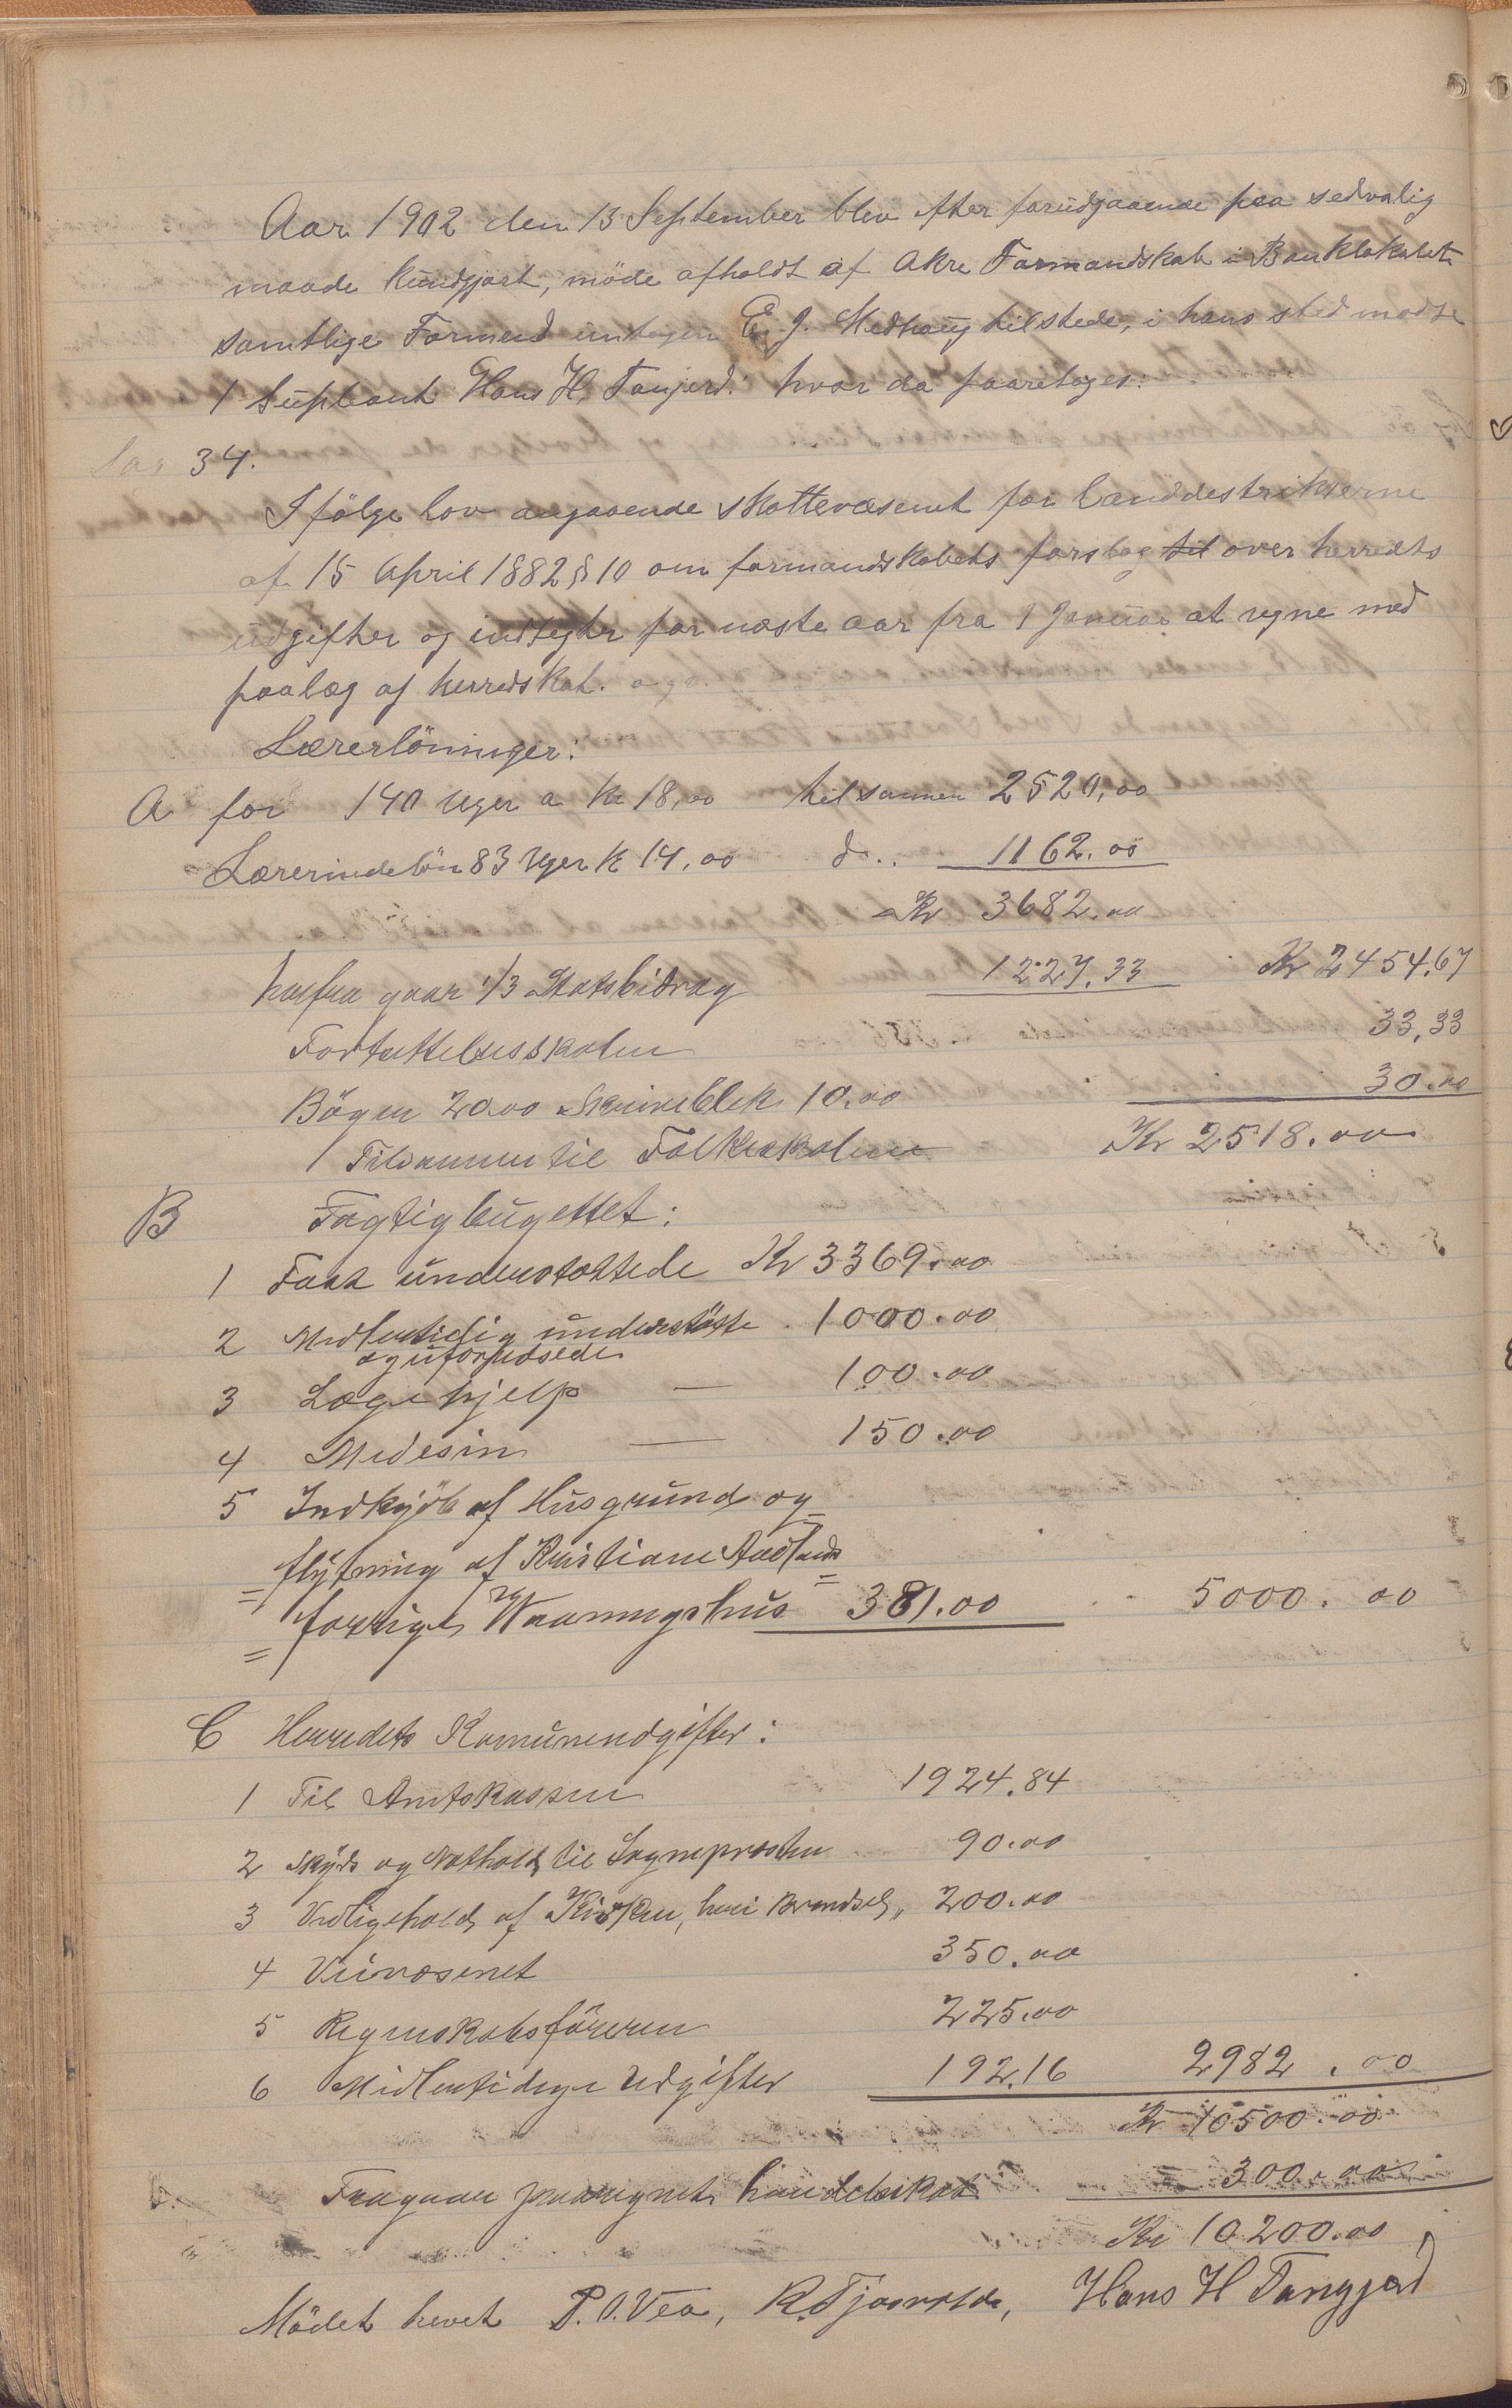 Aar 1902 den 13 September blev efter forudgaaende paa sedvalig
maade kundgjort, möde afholdt af Akre Formandskab i Banklokalet
samtlige Formend undtagen E. J. Medhaug tilstede, i hans sted mødte
1 Supleant Hans H. Tangjerd. hvor da foaretoges:
Sag 34.
Ifölge lov angaaende skattevæsenet for landdestrikterne
af 15 April 1882 § 10 om formandskabets forslag til over herredts
udgifter og indtegter for næste aar fra 1 Januar at regne med
paalæg af herredskat.
Lærerlöninger:
A for 140 Uger a Kr 18,00 tilsammen 2520,00
Lærerindelön 83 Uger K 14,00 do.. 1162.00
Kr 3682.00
herfra gaar 1/3 Statsbidrag 1227.33 Kr 2454.67
Fortsettelsesskolen 33,33
Böger 20.00 Skriveblek 10.00 30.00
Tilsammen til Folkeskolen Kr 2518.00
B Fagtigbugettet:
1 Fast understøttede Kr 3369.00
2 Midlertidig understöste 1000.00
og uforudsede
3 Lægehjelp — 100.00
4 Medesin — 150.00
5 Indkjöb af Husgrund og
= flytning af Kristiane Audlands =
= forrige Waaningshus 381.00 5000.00
C Herredets Komuneudgifter:
1 Til Amtskassen 1924.84
2 Skyds og Nathold til Sogneprosten 90.00
3 Vedligehold af Kirken, heri Brændsel, 200.00
4 Veivæsenet 350.00
5 Regnskabsföreren 225.00
6 Midlertidige Udgifter 192.16 2982.00
Kr 10500.00
Fragaar paaregnet handelsskat 300.00
Kr 10200.00
Mödet hevet P. O. Vea, K. Tjøsvolde, Hans H Tangjerd